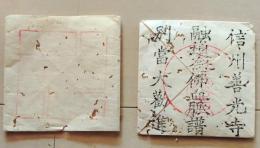 信州善光寺
融通念佛血脈譜
別當大勸進